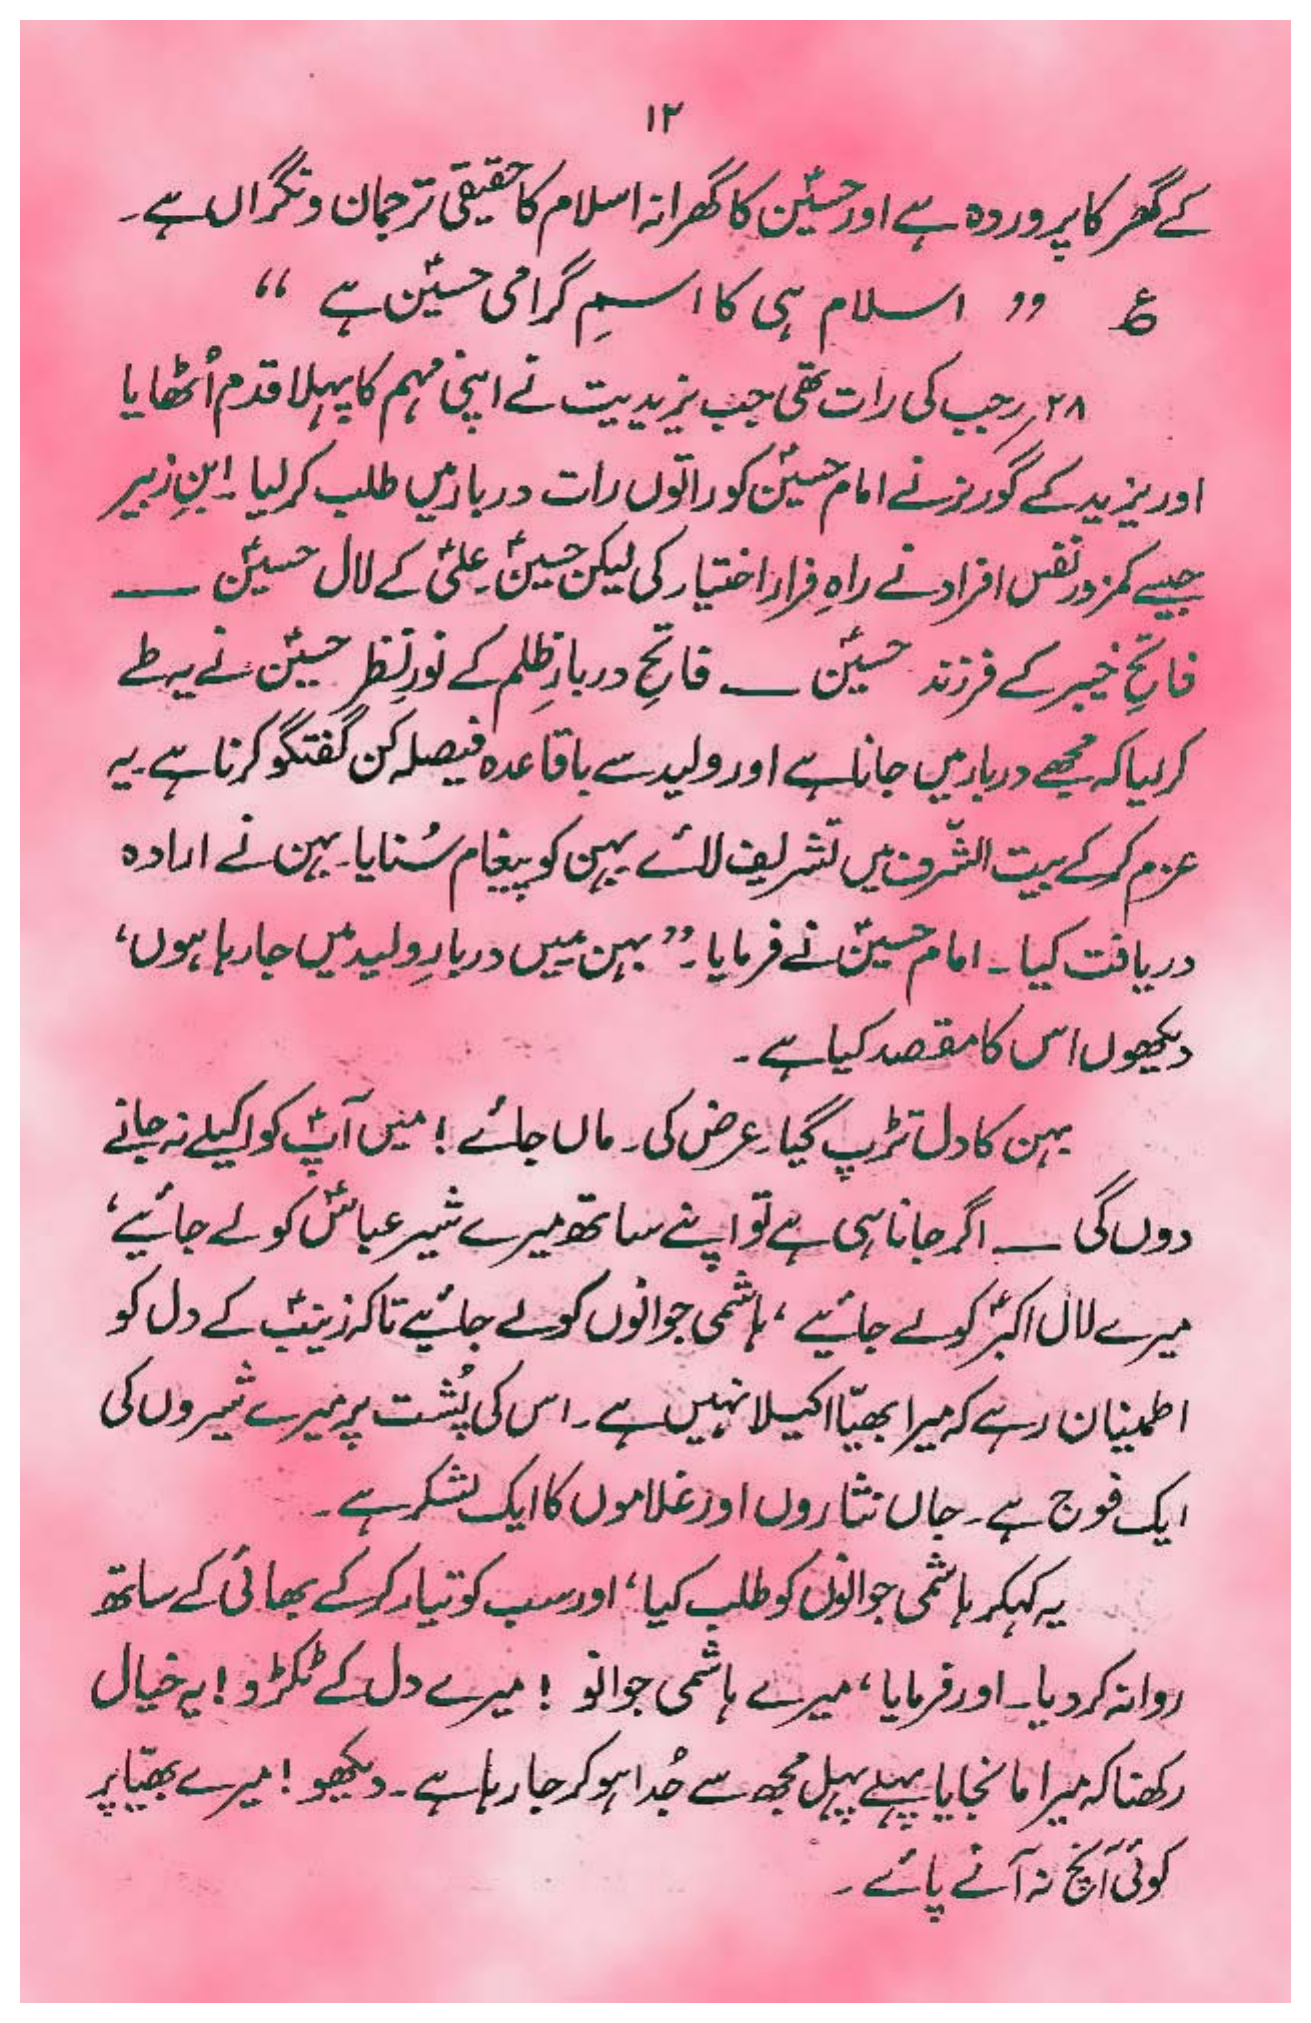 ۱۲
کے گھر کا پروردہ ہے اور حسینؑ کا گھرانہ اسلام کا حقیقی ترجمان و نگراں ہے۔
ع ” اسلام ہی کا اسمِ گرامی حسینؑ ہے “
۲۸؍ رجب کی رات تھی جب یزیدیت نے اپنی مہم کا پہلا قدم اُٹھایا
اور یزید کے گورنر نے امام حسینؑ کو راتوں رات دربار میں طلب کر لیا۔ ابنِ زبیر
جیسے کمزور نفس افراد نے راہِ فرار اختیار کی لیکن حسینؑ۔ علیؑ کے لال حسینؑ —
فاتحِ خیبر کے فرزند حسینؑ — فاتحِ دربارِ ظلم کے نورِ نظر حسینؑ نے یہ طے
کر لیا کہ مجھے دربار میں جانا ہے اور ولید سے باقاعدہ فیصلہ کن گفتگو کرنا ہے۔ یہ
عزم کر کے بیت الشّرف میں تشریف لائے بہن کو پیغام سُنایا۔ بہن نے ارادہ
دریافت کیا۔ امام حسینؑ نے فرمایا۔ ”بہن میں دربارِ ولید میں جا رہا ہوں،
دیکھوں اس کا مقصد کیا ہے۔
بہن کا دل تڑپ گیا۔ عرض کی۔ ماں جائے ! میں آپؑ کو اکیلے نہ جانے
دوں گی — اگر جانا ہی ہے تو اپنے ساتھ میرے شیر عباسؑ کو لے جائیے،
میرے لال اکبرؑ کو لے جائیے، ہاشمی جوانوں کو لے جائیے تاکہ زینبؑ کے دل کو
اطمینان رہے کہ میرا بھیّا اکیلا نہیں ہے۔ اس کی پُشت پر میرے شیروں کی
ایک فوج ہے۔ جاں نثاروں اور غلاموں کا ایک لشکر ہے۔
یہ کہکر ہاشمی جوانوں کو طلب کیا، اور سب کو تیار کر کے بھائی کے ساتھ
روانہ کر دیا۔ اور فرمایا، میرے ہاشمی جوانو ! میرے دل کے ٹکڑو ! یہ خیال
رکھنا کہ میرا مانجایا پہلے پہل مجھ سے جُدا ہو کر جا رہا ہے۔ دیکھو ! میرے بھیّا پر
کوئی آنچ نہ آنے پائے۔